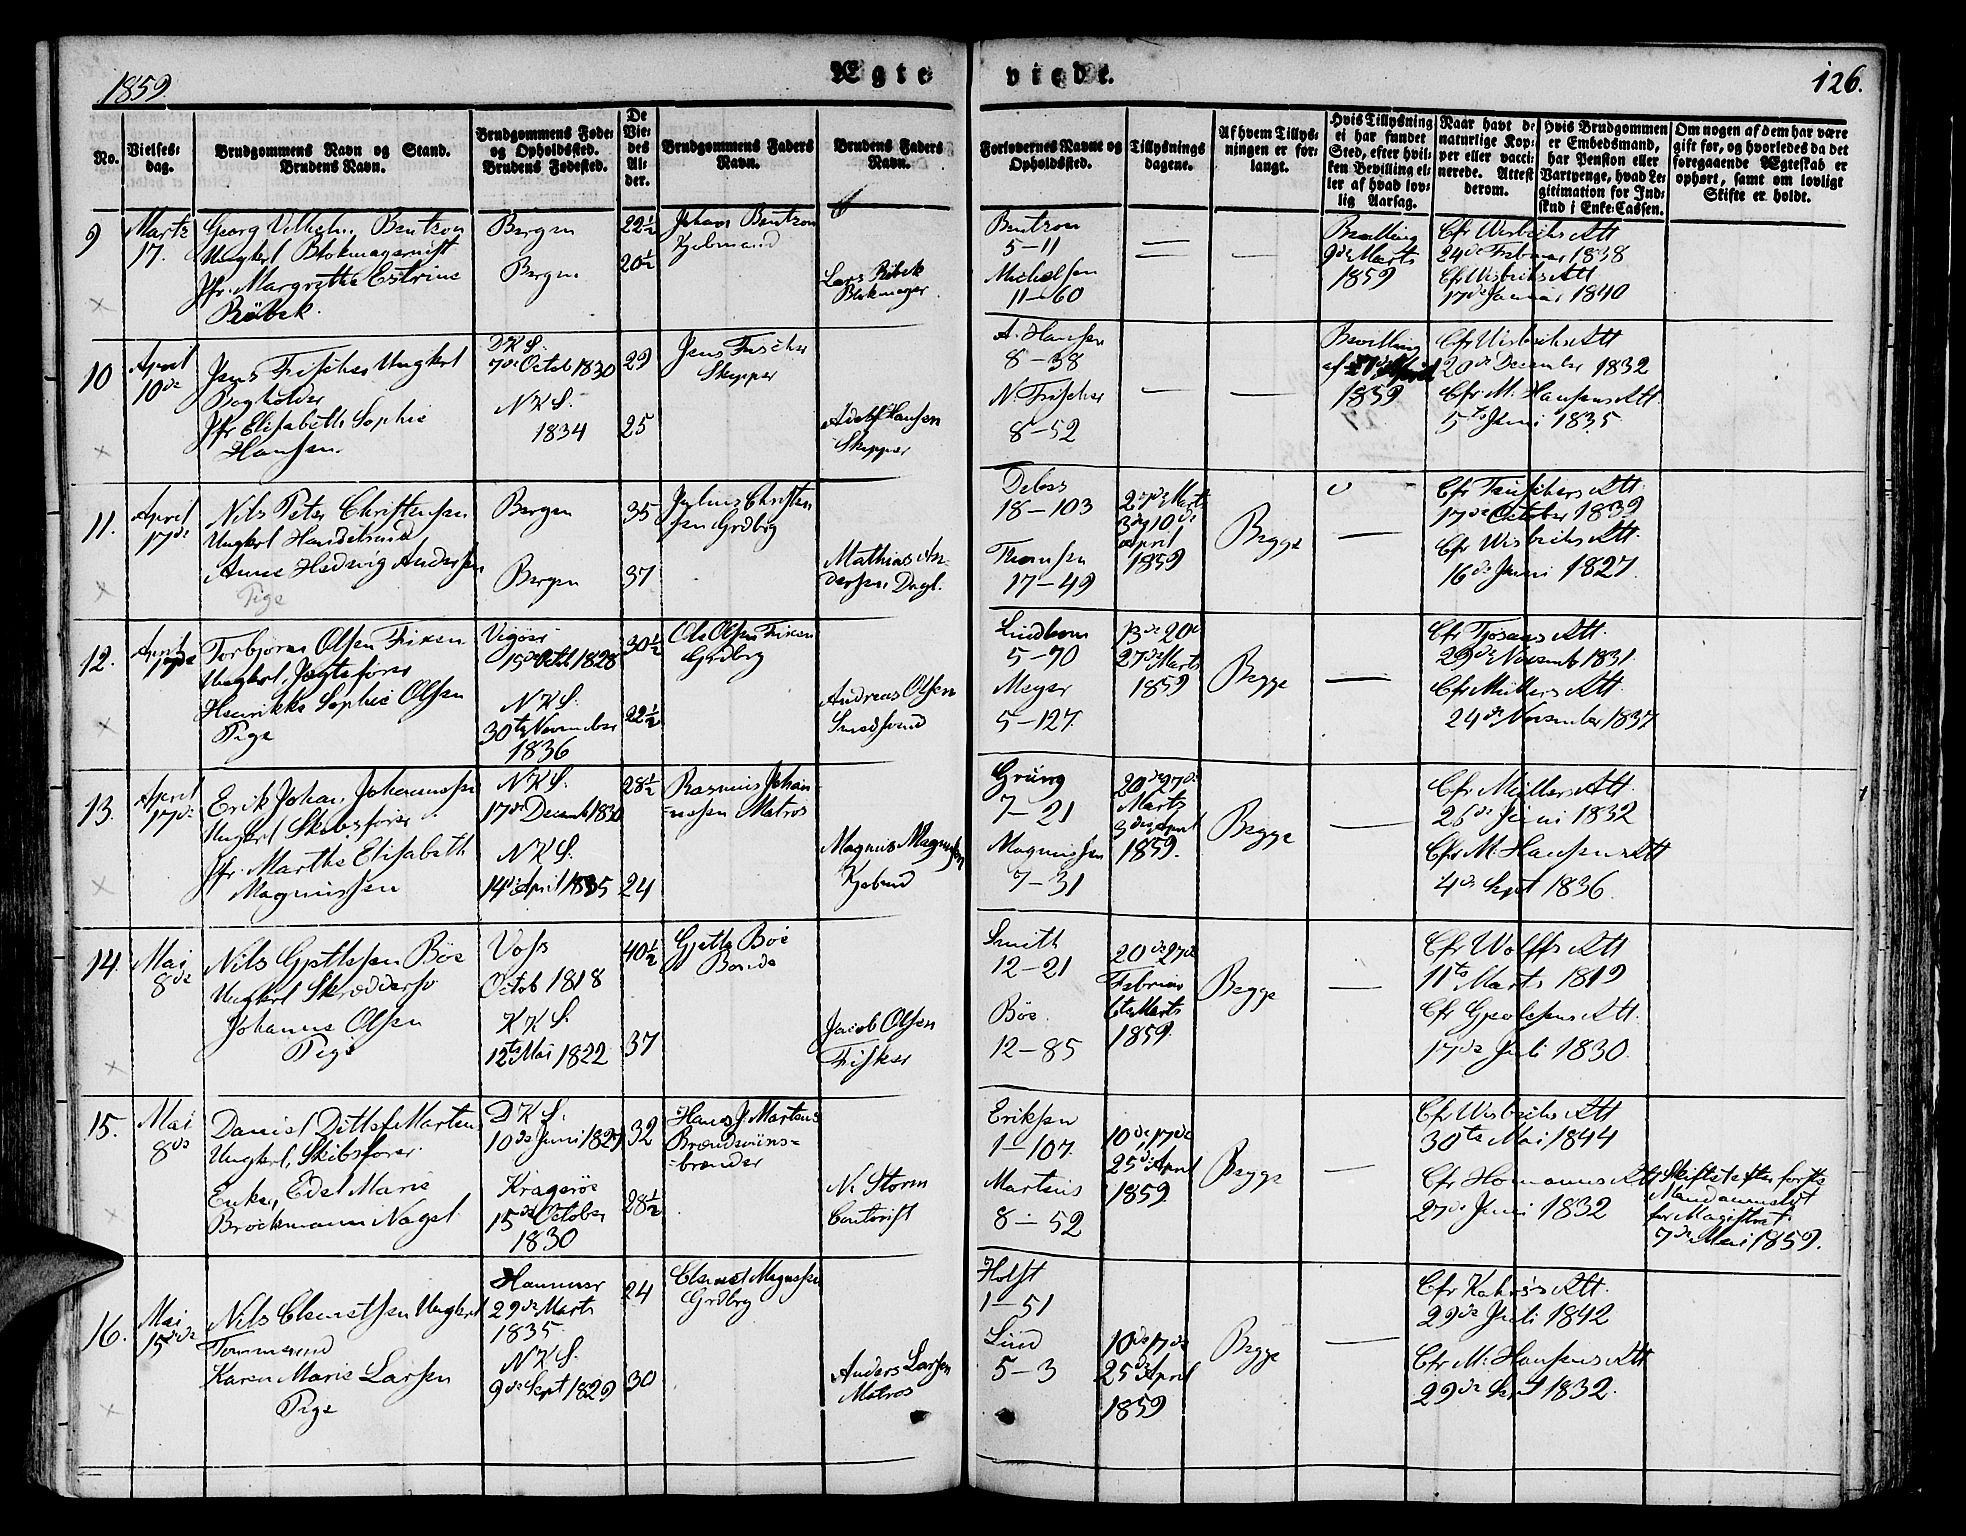 1859.
Ægteviede.
126.
No.
Vielses-
dag.
Brudgommens Navn og Stand.
Brudens Navn.
Brudgommens Føde-
og Opholdssted.
Brudens Fødested.
De
Vie-
des
Al-
der.
Brudgommens Faders
Navn.
Brudens Faders
Navn.
Forlovernes Navne og
Opholdssted.
Tillysnings
dagene.
Af hvem Tillys-
ningen er for-
langt.
Hvis Tillysning
ei har fundet
Sted, efter hvil-
ken Bevilling el-
ler af hvad lov-
lig Aarsag.
Naar havt de
naturlige Kop-
per eller vacci-
nerede. Attest
derom.
Hvis Brudgommen
er Embedsmand,
har Pension eller
Vartpenge, hvad Le-
gitimation for Ind-
skud i Enke-Cassen.
Om nogen af dem har være
gift før, og hvorledes da det
foregaaende Ægteskab er
ophørt, samt om lovligt
Skifte er holdt.
9
Marts
17.
Georg Vilhelm Bentzon
Ungkarl Blokmagersvist
Jfr. Margrethe Estrine
Bøbek.
Bergen
Bergen
22½
20½
Johan Bentzon
Lars Bøbek
Blokmager.
Bentzon
5-11
Michelsen
11-60
Bevilling
9de Marts
1859
Cfr Wisbechs Att
24de Februar 1838
Cfr Wisbechs Att.
17de Januar 1840
10
April
10de
Jens Fischer Ungkarl
Bogholder
Jfr Elisabeth Sophie
Hansen.
DKS.
7de Octob 1830
NKS.
1834
29
25
Jens Fischer
Skipper
Adolf Hansen
Skipper
A. Hansen
8-38
N. Fischer
8-52
Bevilling
af
1859
Cfr Wisbechs Att
20de December 1832
Cfr M. Hansens Att.
5te Juni 1835.
11.
April
17de
Nils Peter Christensen
Ungkarl Handelsmd
Anne Hedevig Andersen
Pige
Bergen
Bergen
35
37
Julius Christen
sen Grdbrg
Mathias An-
dersen Dagl.
18-103
Thomsen
17-49
27de Marts
3de 10de
April
1859
Begge
17de October 1839
Cfr Wisbechs Att.
16de Juni 1827.
12.
April
17de
Torbjørn Olsen Fixen
Ungkarl, Jægtefører
Henrikke Sophie Olsen
Pige
Vigøer
15de Octob 1828
NKS.
30te November
1836
30½
22½
Ole Olsen Fixen
Grdbrg
Andreas Olsen
Smedsvend
Lindbom
5-70
Meyer
5-127.
13de 20de
27de Marts
1859
Begge
29de Novemb 1831.
Cfr Müllers Att.
24de November 1837
13.
April
17de
Erik Johan Johannesen
Ungkarl Skibsfører
Jfr. Marthe Elisabeth
Magnussen
NKS.
17de Decemb 1830
NKS.
14de April 1835
28½
24
Rasmus Johan-
nessen Matros
Magnus Magnussen
Grüng
7-21
Magnussen
7-31
20de 27de
Marts
3de April
1859.
Begge
Cfr Müllers Att.
26de Juni 1832
Cfr M. Hansens Att
4de Sept 1836.
14.
Mai
8de
Nils Gjettesen Böe
Ungkarl Skrædders
Johanne Olsen
Pige
Voss
Octob 1818
KKS.
12te Mai 1822
40½
37
Gjette Böe
Bonde
Jacob Olsen
Fisker
Smith
12-21
Böe.
12-85
20de 27de
Februar
6te Marts
1859.
Begge
Cfr Wolffs Att
11te Marts 1819
17de Juli 1830.
15.
Mai
8de
Daniel Ditlef Martens
Ungkarl, Skibsfører.
Enke, Edel Marie
Brockmann Nagel
DKS.
10de Juni 1827
Kragerøe
15de October
1830
32
28½
Hans J. Martens
Brændeviins-
brænder
N. Storm
Contorist
Eriksen
1-107.
Martens
8-52
10de 17de
25de April
1859.
Begge
Cfr Wisbechs Att
30te Mai 1844
Cfr Homanns Att
27de Juni 1832
7de Mai 1859.
16.
Mai
15de
Nils Clemetsen Ungkarl
Tømmermd
Karen Marie Larsen
Pige
Hammer
29de Marts
1835.
NKS.
9de Sept 1829
24
30
Clemet Magnussen
Grdbrg
Anders Larsen
Matros
Holst
1-51
Lund
5-3
10de 17de
25de April
1859
Begge
Cfr Kahrs's Att.
29de Juli 1842
Cfr M. Hansens Att
29de Sept 1832.